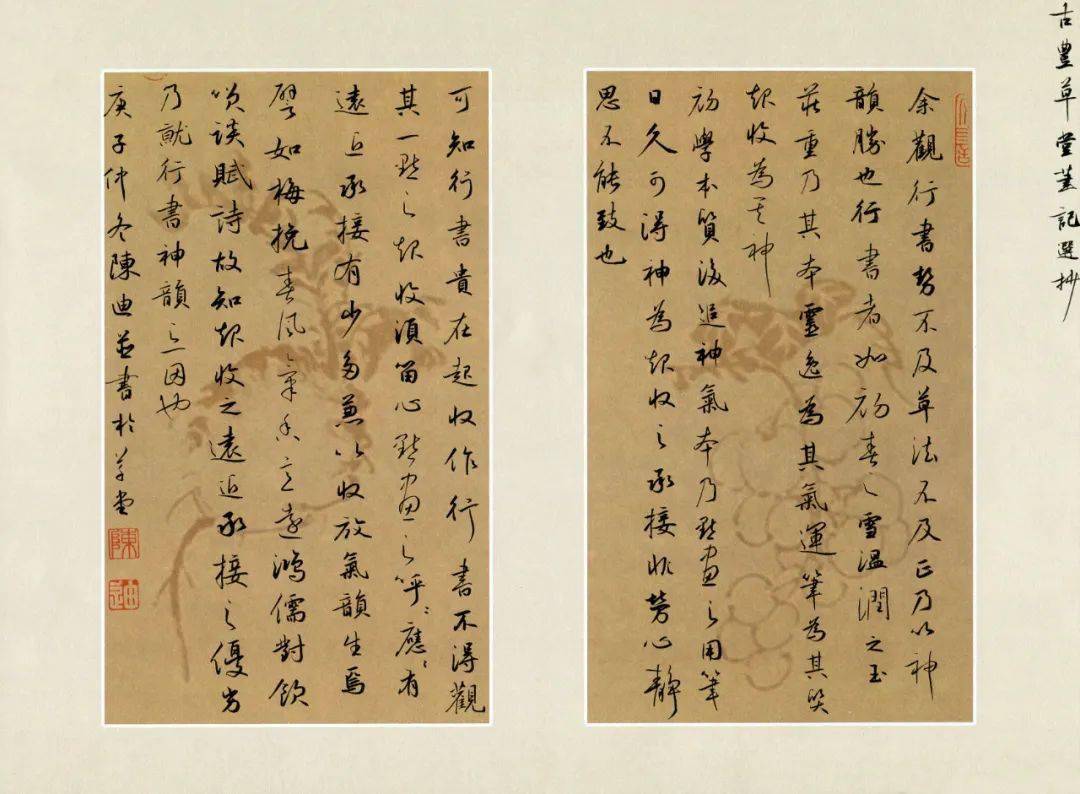 古豐草堂董記選抄
余觀行書勢不及草法不及正乃以神
韻勝也行書者如初春之雪溫潤之玉
莊重乃其本靈逸為其氣運筆為其質
起收為其神
初學本質後追神氣本乃點畫之用筆
日久可得神為起收之承接非勞心靜
思不能致也
可知行書貴在起收作行書不得觀
其一點之起收須留心點畫之呼應有
遠近承接有少多兼以收放氣韻生焉
譬如梅挽春風氣香意遠鴻儒對飲
笑談賦詩故知起收之遠近承接之優劣
乃就行書神韻之因也
庚子仲冬陳迪並書於草堂
陳
迪